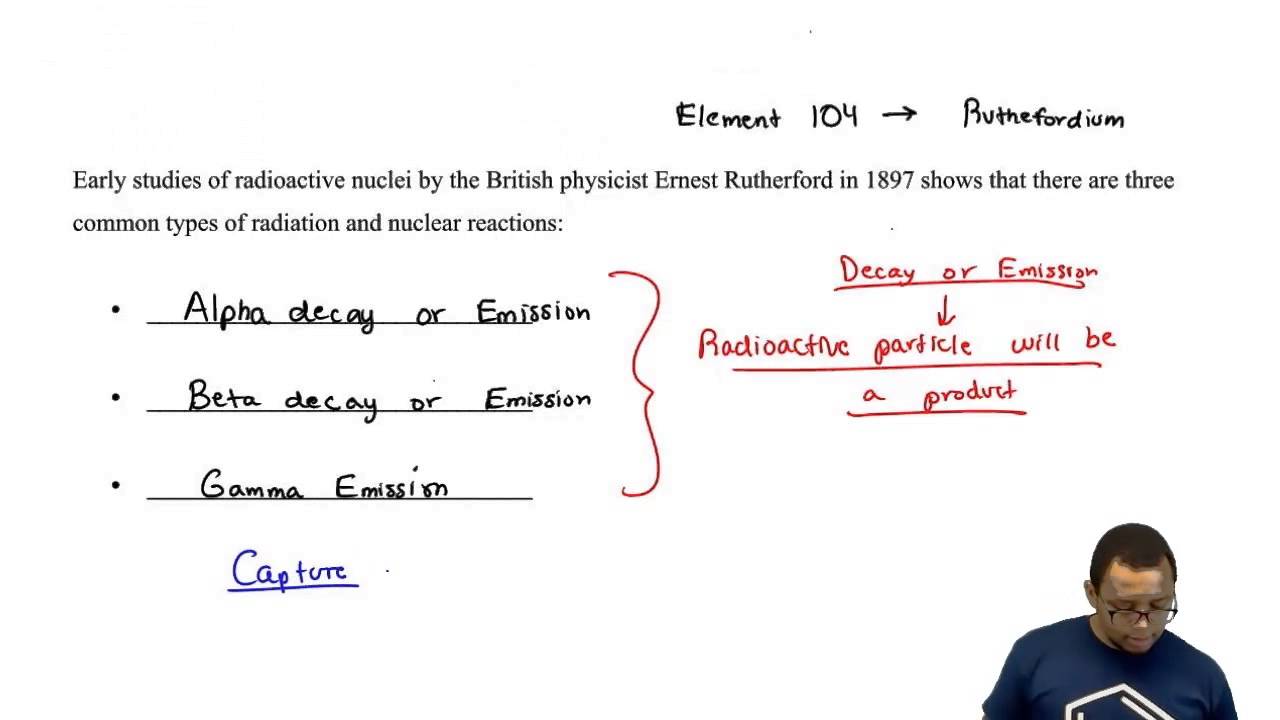 Element 104 → Ruthefordium
Early studies of radioactive nuclei by the British physicist Ernest Rutherford in 1897 shows that there are three
common types of radiation and nuclear reactions:
Decay or Emission
• Alpha decay or Emission
Radioactive particle will be
a product
• Beta decay or Emission
• Gamma Emission
Capture